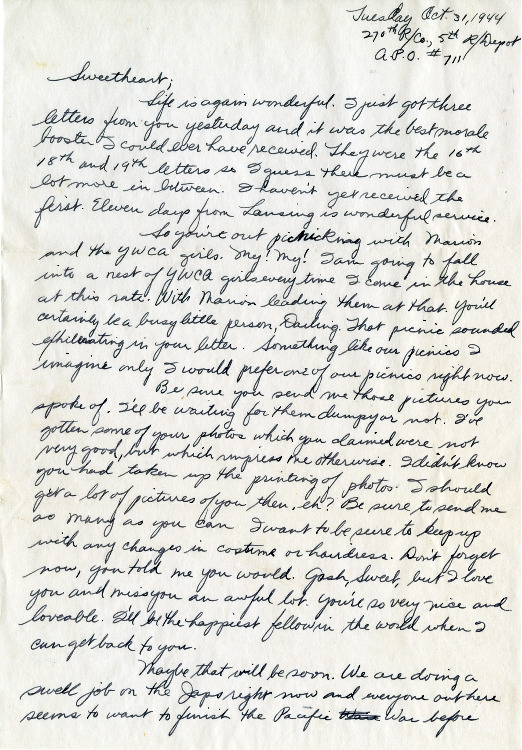 Tuesday Oct. 31, 1944
270th R/Co., 5th R/Depot
A.P.O. # 711
Sweetheart;
Life is again wonderful. I just got three
letters from you yesterday and it was the best morale
booster I could ever have received. They were the 16th
18th and 19th letters so I guess there must be a
lot more in between. I haven't yet received the
first. Eleven days from Lansing is wonderful service.
So you're out picnicking with Marion
and the YWCA girls. My! My! I am going to fall
into a nest of YWCA girls every time I come in the house
at this rate. With Marion leading them at that. You'll
certainly be a busy little person, Darling. That picnic sounded
exhilerating in your letter. Something like our picnics I
imagine only I would prefer one of our picnics right now.
Be sure you send me those pictures you
spoke of. I'll be waiting for them dumpy or not. I've
gotten some of your photos which you claimed were not
very good, but which impress me otherwise. I didn't know
you had taken up the printing of photos. I should
get a lot of pictures of you then, eh? Be sure to send me
as many as you can. I want to be sure to keep up
with any changes in costume or hairdress. Don't forget
now, you told me you would. Gosh, Sweet, but I love
you and miss you an awful lot. You're so very nice and
loveable. I'll be the happiest fellow in the world when I
can get back to you.
Maybe that will be soon. We are doing a
swell job on the Japs right now and everyone out here
seems to want to finish the Pacific War before